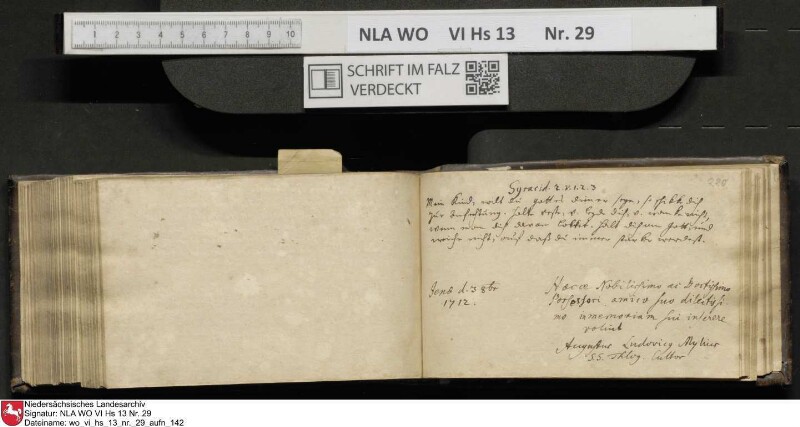 1 2 3 4 5 6 7 8 9 10
NLA WO VI Hs 13 Nr. 29
SCHRIFT IM FALZ
VERDECKT
Syracid. 2. v. 1. 2. 3
Mein Kind, wilt du gottes diener seyn, so schick dich
zur anfechtung. halte veste, v. leyde dich, v. wancke nicht,
wenn man dich davon locket. halt dich an gott, und
weiche nicht, auf daß du immer stärcker werdest.
Jenæ d. 3 8br
1712.
Haece Nobilissimo ac Doctissimo
Possessori amico suo dilectissi-
mo in memoriam sui
voluit
Augustus Ludovicq Mylius
SS. Theog. Cultor
Niedersächsisches Landesarchiv
Signatur: NLA WO VI Hs 13 Nr. 29
Dateiname: wo_vi_hs_13_nr._29_aufn_142